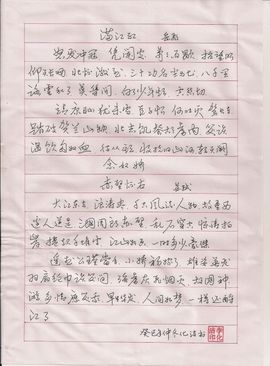 满江红 岳飞
怒发冲冠 凭阑处 萧萧雨歇 抬望眼
仰天长啸 壮怀激烈 三十功名尘与土 八千里
路云和月 莫等闲 白了少年头 空悲切
靖康耻 犹未雪 臣子恨 何时灭 驾长车
踏破贺兰山缺 壮志饥餐胡虏肉 笑谈
渴饮匈奴血 待从头 收拾旧山河 朝天阙
念奴娇
赤壁怀古 苏轼
大江东去 浪淘尽 千古风流人物 故垒西
边人道是 三国周郎赤壁 乱石穿空 惊涛拍
岸 卷起千堆雪 江山如画 一时多少豪杰
遥想公瑾当年 小乔初嫁了 雄姿英发
羽扇纶巾 谈笑间 樯橹灰飞烟灭 故国神
游 多情应笑我 早生华发 人间如梦 一樽还酹
江月
癸巳年仲冬